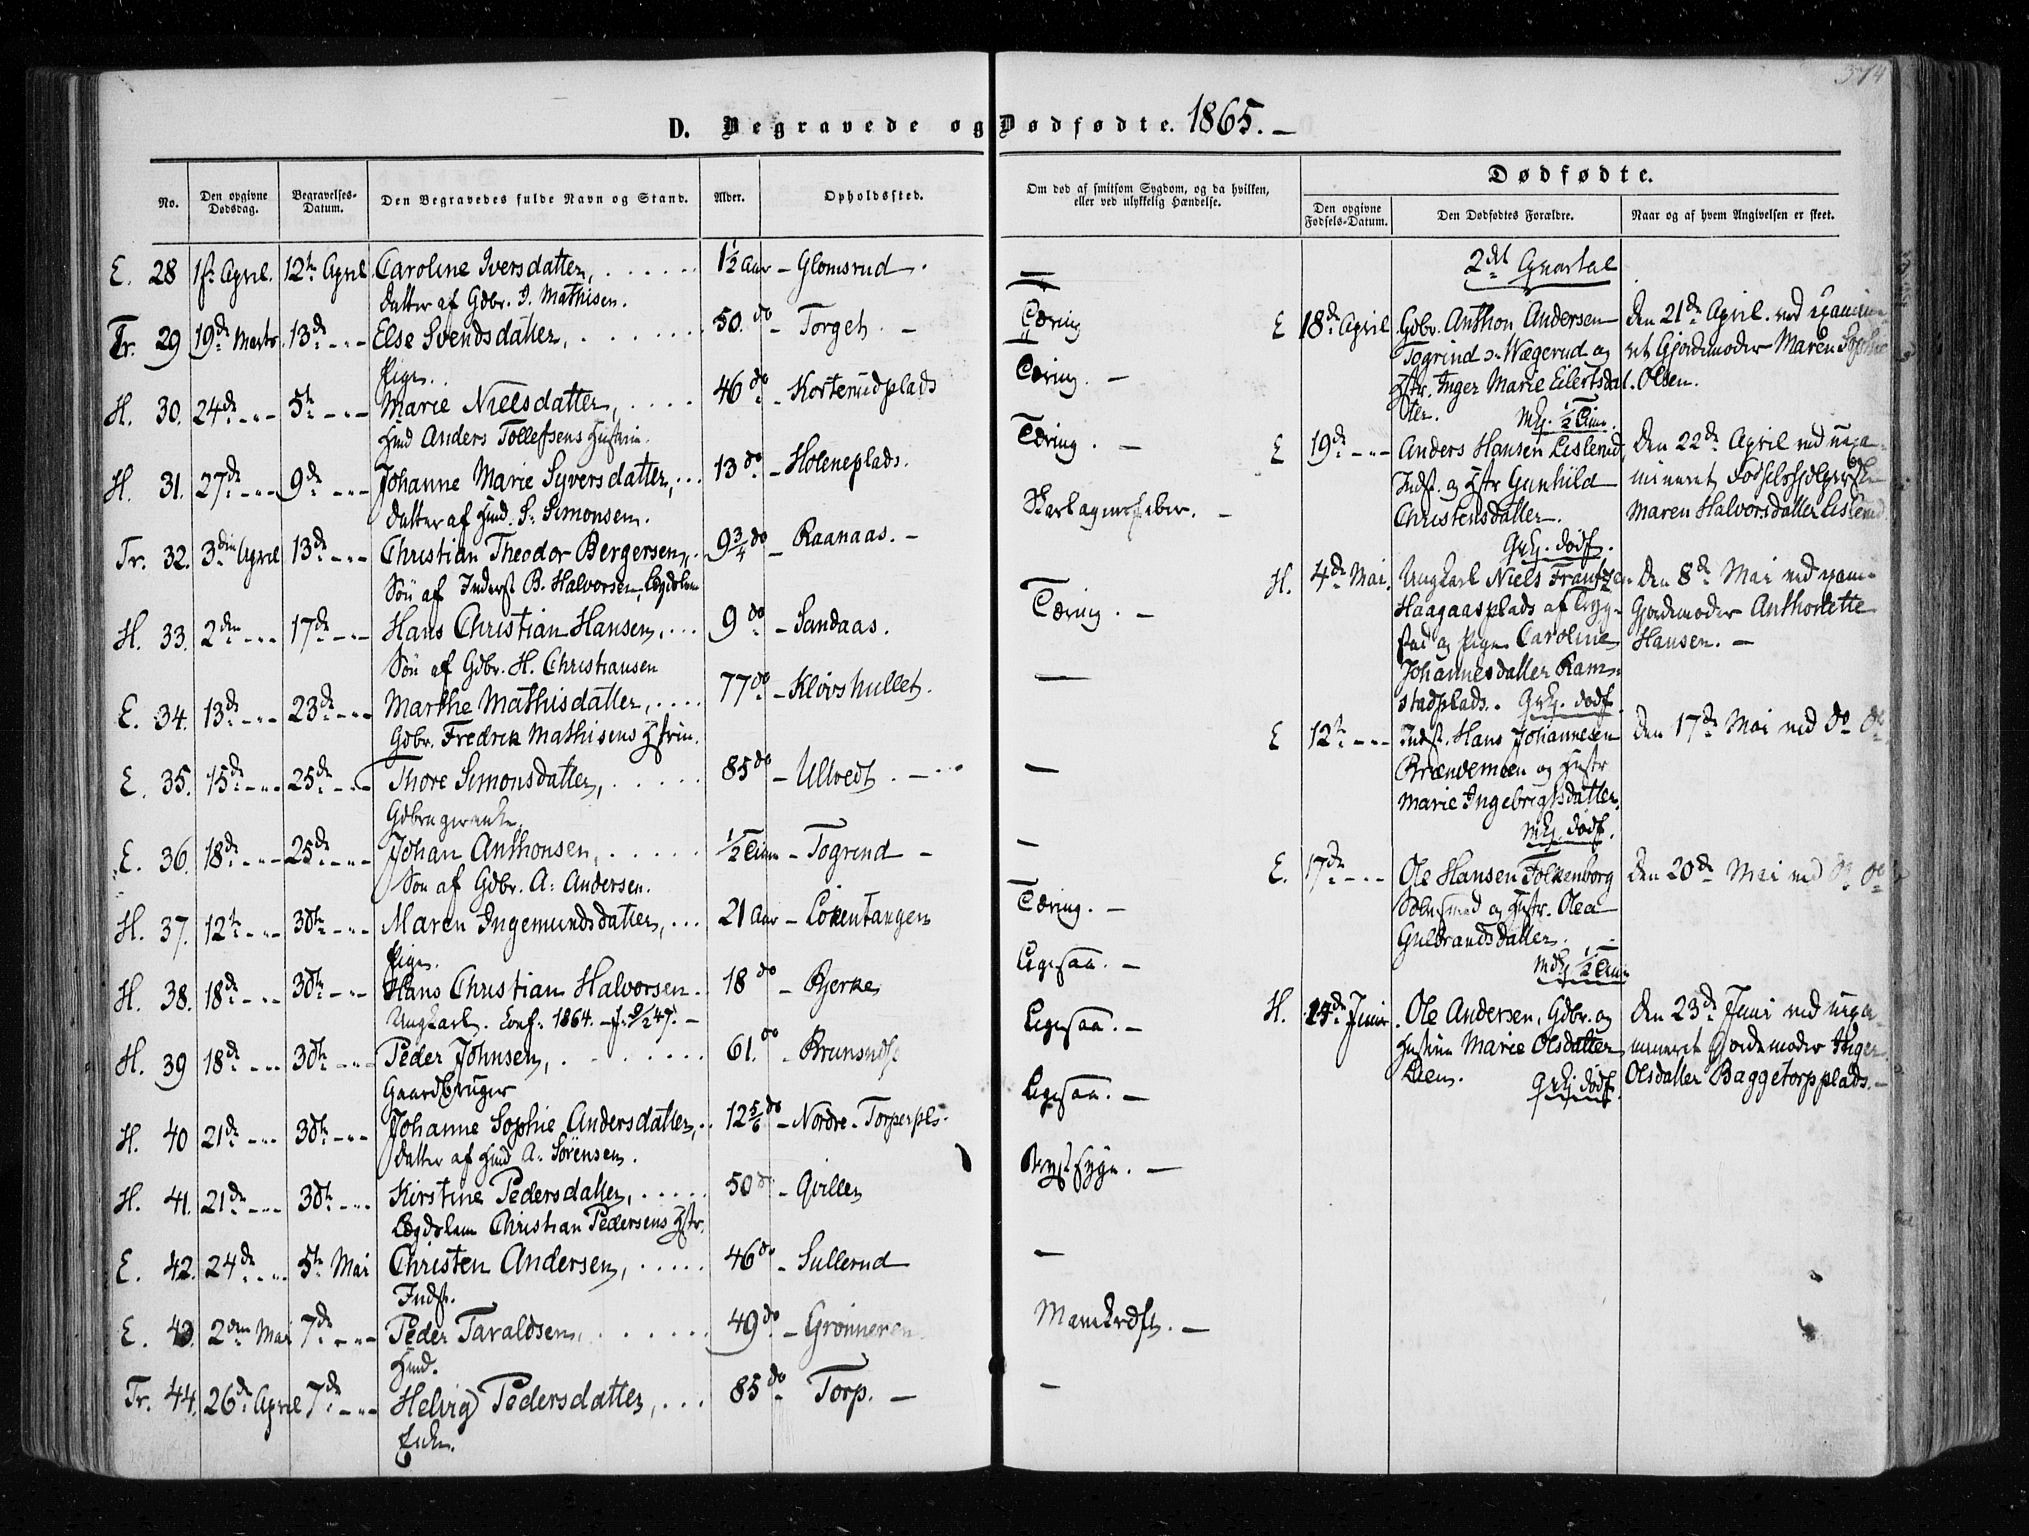 574
D. Begravede og Dødfødte. 1865. —
No.
Den opgivne Dødsdag.
Begravelses-Datum.
Den Begravedes fulde Navn og Stand.
Alder.
Opholdssted.
Om død af smitsom Sygdom, og da hvilken,
eller ved ulykkelig Hændelse.
Dødfødte.
Den opgivne Fødsels-Datum.
Den Dødfødtes Forældre.
Naar og af hvem Angivelsen er skeet.
E. 28 1ste April. 12te April Caroline Iversdatter, 1½ Aar - Glomsrud. —
Datter af Gdbr. I. Mathisen.
Tr. 29 19de Marts 13de - - Else Svendsdatter, 50. do - Torget. - Tæring
Pige.
H. 30. 24de - - 5te - - Marie Nielsdatter, 46 do - Korterudplads Tæring. —
Hmd Anders Tollefsens Hustrue.
H. 31. 27de - - 9de - - Johanne Marie Syversdatter, 13 do - Holeneplads. Tæring. —
Datter af Hmd. S. Simonsen.
Tr. 32. 3die April 13de - - Christian Theodor Bergersen, 9¾ do - Raanaas. - Skarlagensfeber. —
Søn af Inderst B. Halvorsen, Lægdslem
H. 33. 2den - - 17de - - Hans Christian Hansen, 9 do - Sandaas. Tæring. —
Søn af Gdbr. H. Christiansen
E. 34. 13de - - 23de - - Marthe Mathisdatter, 77 do - Kløvshullet. —
Gdbr. Fredrek Mathisens Hstrue.
E. 35. 15de - - 25de - - Thore Simonsdatter, 85 do - Ullvedt. - —
Gdbrugerenke.
E. 36. 18de - - 25de - - Johan Anthonsen, ½ Time - Togrind - —
Søn af Gdbr. A. Andersen.
H. 37. 12te - - 30te - - Maren Ingemundsdatter, 21 Aar - Løkentangen Tæring. —
Pige.
H. 38. 18de - - 30te - - Hans Christian Halvorsen. 18 do - Bjerke Ligesaa. —
Ungkarl. Conf. 1864. - f. 9/2 47. -
H. 39 18de - - 30te - - Peder Johnsen, 61. do - Ligesaa. —
Gaardbruger
H. 40 21de - - 30te - - Johanne Sophie Andersdatter, 12 5/6 do - Nordre-Torperpls. Ligesaa. —
Datter af Hmd A. Sørensen.
H. 41. 21de - - 30te - - Kirstine Pedersdatter, 50 do - Qviller Brystsyge. —
Lægdslem Christian Pedersens Hstr.
E. 42. 24de - - 5te Mai Christen Andersen, 46 do - Sullerud —
Indst.
E. 43. 2den Mai 7de - - Peder Taraldsen, 49 do - Grønneren. —
Hmd.
Tr. 44. 26de April 7de - - Helvig Pedersdatter, 85 do - Torp. - —
Enke.
2det Qvartal
E 18de April Gdbr. Anthon Andersen
Togrind Wægerud og
Hstr. Inger Marie Eilertsdat-
ter. Mkj. ½ Time.
Den 21de April. ved examine-
ret Gjordemoder Maren Sophie
Olsen.
E 19de - - Anders Hansen Lislerud
Indst. og Hstr Gunhild
Christensdatter.
Qvkj. Dødf.
Den 22de April ved uexa-
mineret Fødselshjelperske
Maren Halvorsdatter Lislerud.
H. 4de Mai. Ungkarl Niels Frantzen
Haagaasplads af Tryg-
stad og Pige Caroline
Johannesdatter Ram-
stadplads. Qvkj. Dødf.
Den 8de Mai ved exam.
Gjordemoder Anthonette
Hansen. —
E 12te - - Indst. Hans Johannesen
Brændemoen og Hustr
Marie Ingebrigtsdatter.
Mkj. Dødf.
Den 17de Mai ved do do
E. 17de - - Ole Hansen Folkenborg
og Hustr. Olea
Gulbrandsdatter.
Mdkj. ½ Time
Den 20de Mai ved do do
H. Juni Ole Andersen, Gdbr. og
Hustrue Marie Olsdatter
Lien. Qvkj Dødf.
Den 23de Juni ved uexa-
mineret Gjordemoder Inger
Olsdatter Baggetorpplads. —